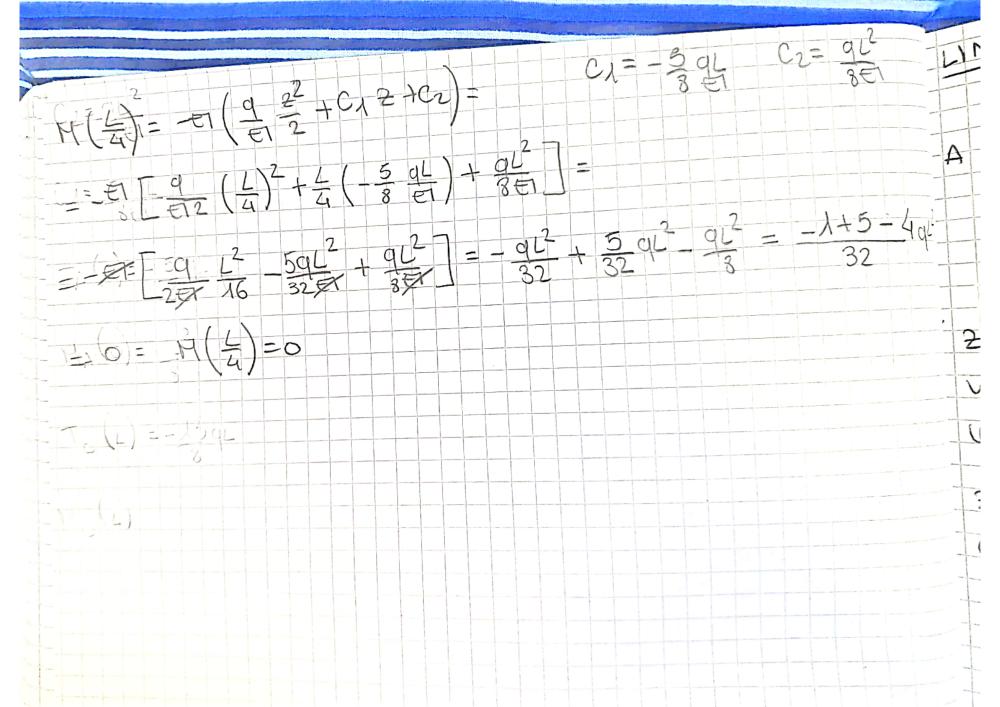 C₁ = -5/8 qL/EI   C₂ = qL²/8EI
M(L/4) = -EI(q/EI z²/2 + C₁ z + C₂) =
= -EI[q/EI2 (L/4)² + L/4 (-5/8 qL/EI) + qL²/8EI] =
= -EI[q/2EI L²/16 - 5qL²/32EI + qL²/8EI] = -qL²/32 + 5/32 qL² - qL²/8 = -1+5-4/32 qL
(0) = M(L/4) = 0
(L) = -
(L)
LIN
A
Z